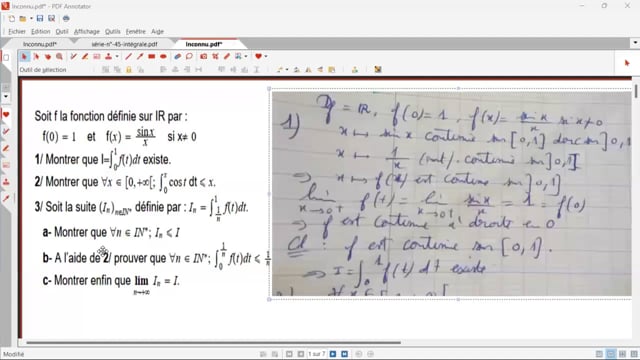 Inconnu.pdf* - PDF Annotator
Fichier Edition Outil Affichage Document Options Aide
Inconnu.pdf*
série-n°-45-intégrale.pdf
Inconnu.pdf*
Outil de détection
Soit f la fonction définie sur IR par :
f(0) = 1 et f(x) = sin x / x si x ≠ 0
1/ Montrer que I=∫₀¹ f(t)dt existe.
2/ Montrer que ∀x ∈ [0,+∞[; ∫₀ˣ cos t dt ⩽ x.
3/ Soit la suite (Iₙ)n∈IN* définie par : Iₙ = ∫_{1/n}^{1} f(t)dt.
a- Montrer que ∀n ∈ IN*; Iₙ ⩽ I
b- A l'aide de 2/ prouver que ∀n ∈ IN*; ∫₀^{1/n} f(t)dt ⩽ 1/n
c- Montrer enfin que lim n→+∞ Iₙ = I.
Df = IR, f(0) = 1, f(x) = sin x / x si x≠0
1) x ↦ sin x continue sur [0,1] donc sur ]0,1
x ↦ 1/x continue sur ]0,1]
⇒ x ↦ f(x) est continue sur ]0,1]
lim x→0⁺ f(x) = lim x→0⁺ sin x / x = 1 = f(0)
⇒ f est continue à droite en 0
Cl : f est continue sur [0,1].
⇒ I = ∫₀¹ f(t) dt existe
Modifié
1 sur 7